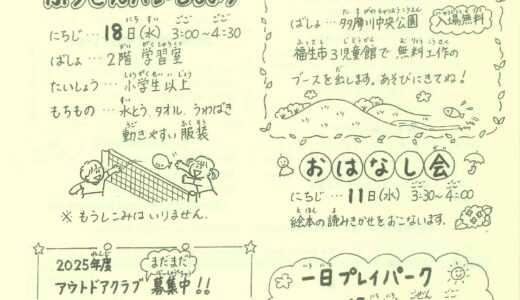 にちじ…18日(水) 3:00～4:30
ばしょ…2階 学習室
たいしょう…小学生以上
もちもの…水とう、タオル、うわばき
動きやすい服装
※ もうしこみはいりません。
2025年度
まだまだ
アウトドアクラブ 募集中!!
ばしょ…多摩川中央公園
入場無料
福生市3児童館で 無料工作の
ブースを出します。あそびにきてね!
おはなし会
にちじ…11日(水) 3:30～4:00
絵本の読みきかせをおこないます。
一日プレイパーク